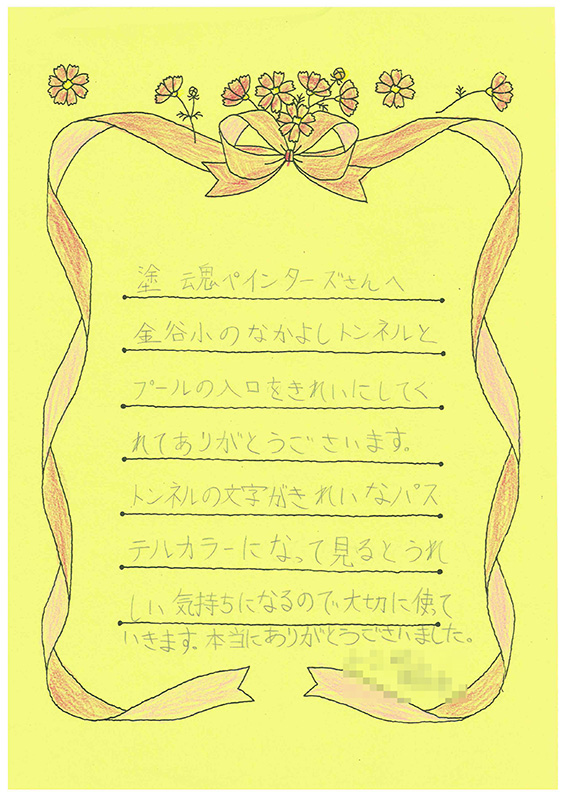 塗魂ペインターズさんへ
金谷小のなかよしトンネルと
プールの入口をきれいにしてく
れてありがとうございます。
トンネルの文字がきれいなパス
テルカラーになって見るとうれ
しい気持ちになるので大切に使て
いきます。本当にありがとうございました。